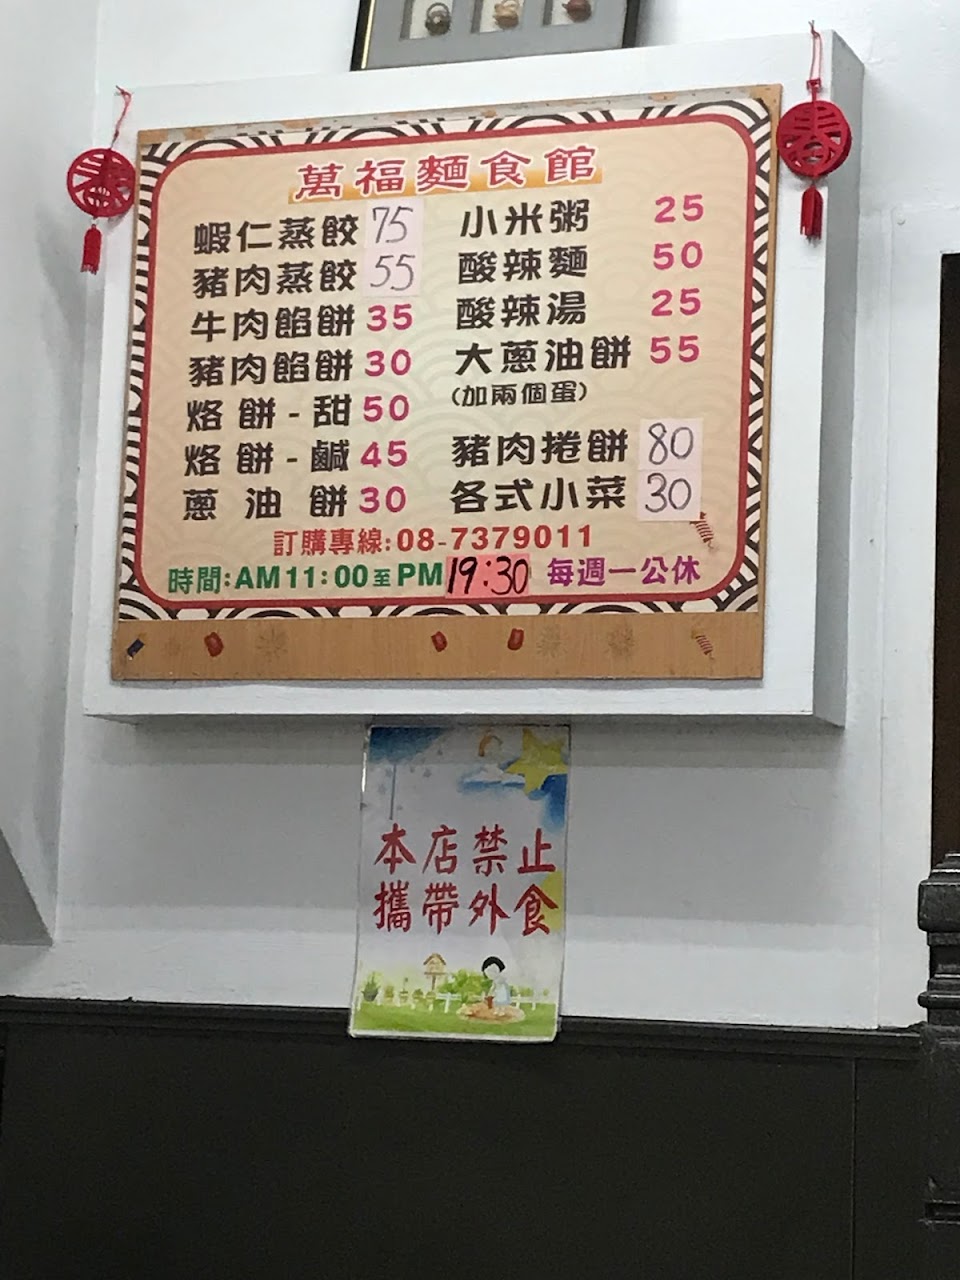 萬福麵食館
蝦仁蒸餃 75
豬肉蒸餃 55
牛肉餡餅 35
豬肉餡餅 30
烙餅-甜 50
烙餅-鹹 45
蔥油餅 30
小米粥 25
酸辣麵 50
酸辣湯 25
大蔥油餅 55
(加兩個蛋)
豬肉捲餅 80
各式小菜 30
訂購專線:08-7379011
時間:AM11:00至PM19:30 每週一公休
春
春
本店禁止
攜帶外食